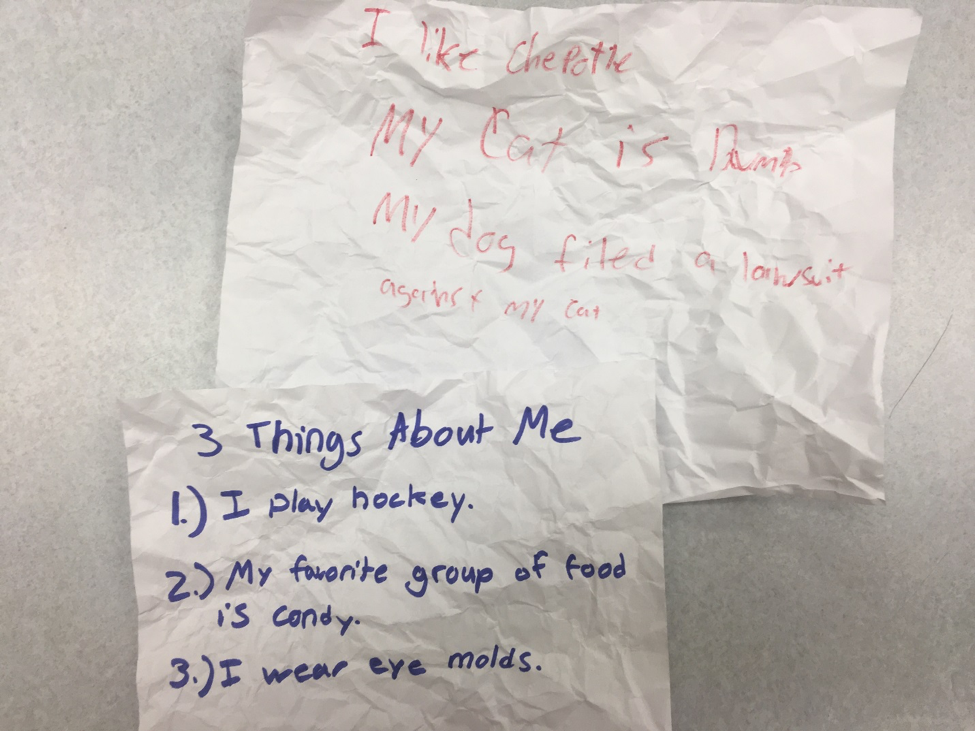 I like Chepotle
My Cat is Dumb
My dog filed a lawsuit
against my cat
3 Things About Me
1.) I play hockey.
2.) My favorite group of food
is candy.
3.) I wear eye molds.